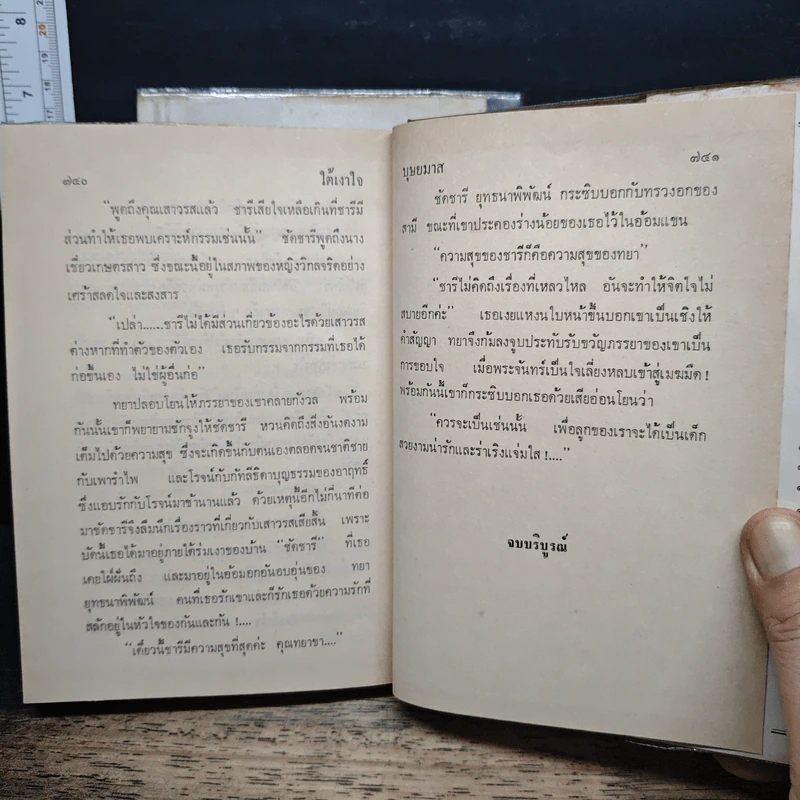 ๗๔๐ ใต้เงาใจ
"พูดถึงคุณเสาวรสแล้ว ชารีเสียใจเหลือเกินที่ชารีมี
ส่วนทำให้เธอพบเคราะห์กรรมเช่นนั้น" ชัดชารีพูดถึงนาง
เชี่ยวเกษตรสาว ซึ่งขณะนี้อยู่ในสภาพของหญิงวิกลจริตอย่าง
เศร้าสลดใจและสงสาร
"เปล่า......ชารีไม่ได้มีส่วนเกี่ยวข้องอะไรด้วยเสาวรส
ต่างหากที่ทำตัวของตัวเอง เธอรับกรรมจากกรรมที่เธอได้
ก่อขึ้นเอง ไม่ใช่ผู้อื่นก่อ"
ทยาปลอบโยนให้ภรรยาของเขาคลายกังวล พร้อม
กันนั้นเขาก็พยายามชักจูงให้ชัดชารี หวนคิดถึงสิ่งอันงดงาม
เต็มไปด้วยความสุข ซึ่งจะเกิดขึ้นกับตนเองตลอดจนชาติชาย
กับเพารำไพ และโรจน์กับกัทลีธิดาบุญธรรมของอาฤทธิ์
ซึ่งแอบรักกับโรจน์มาช้านานแล้ว ด้วยเหตุนี้อีกไม่กี่นาทีต่อ
มาชัดชารีจึงลืมนึกเรื่องราวที่เกี่ยวกับเสาวรสเสียสิ้น เพราะ
บัดนี้เธอได้มาอยู่ภายใต้ร่มเงาของบ้าน "ชัดชารี" ที่เธอ
เคยใฝ่ฝันถึง และมาอยู่ในอ้อมอกอันอบอุ่นของ ทยา
ยุทธนาพิพัฒน์ คนที่เธอรักเขาและก็รักเธอด้วยความรักที่
สลักอยู่ในหัวใจของกันและกัน !....
"เดี๋ยวนี้ชารีมีความสุขที่สุดค่ะ คุณทยาขา...."
บุษยมาส ๗๔๑
ชัดชารี ยุทธนาพิพัฒน์ กระซิบบอกกับทรวงอกของ
สามี ขณะที่เขาประคองร่างน้อยของเธอไว้ในอ้อมแขน
"ความสุขของชารีก็คือความสุขของทยา"
"ชารีไม่คิดถึงเรื่องที่เหลวไหล อันจะทำให้จิตใจไม่
สบายอีกค่ะ" เธอเงยแหงนใบหน้าขึ้นบอกเขาเป็นเชิงให้
คำสัญญา ทยาจึงก้มลงจูบประทับรับขวัญภรรยาของเขาเป็น
การขอบใจ เมื่อพระจันทร์เป็นใจเลี่ยงหลบเข้าสู่เมฆมืด !
พร้อมกันนี้เขาก็กระซิบบอกเธอด้วยเสียอ่อนโยนว่า
"ควรจะเป็นเช่นนั้น เพื่อลูกของเราจะได้เป็นเด็ก
สวยงามน่ารักและร่าเริงแจ่มใส !...."
จบบริบูรณ์
8
7
20
19
18
17